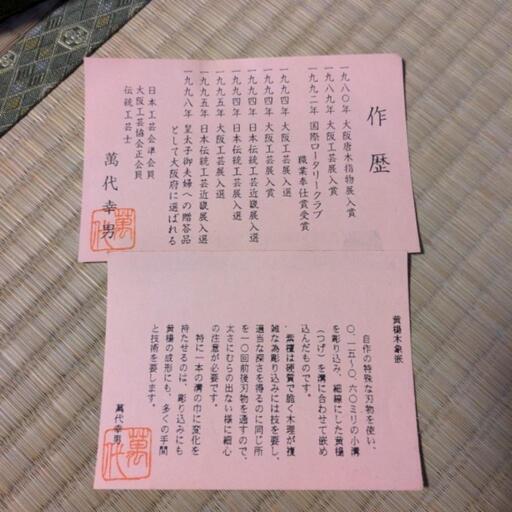 作歴
一九八〇年 大阪唐木指物展入賞
一九八九年 大阪工芸展入賞
一九九二年 国際ロータリークラブ
職業奉仕賞受賞
一九九四年 大阪工芸展入選
一九九四年 大阪工芸展入賞
一九九四年 日本伝統工芸近畿展入選
一九九五年 大阪工芸展入選
一九九五年 日本伝統工芸近畿展入選
一九九八年 皇太子御夫婦への贈答品
として大阪府に選ばれる
日本工芸会準会員
大阪工芸協会正会員
伝統工芸士
萬代幸男
萬代
黄楊木象嵌
自作の特殊な刃物を使い、
〇、一五〜〇、六〇ミリの小溝
を彫り込み、細線にした黄楊
(つげ)を溝に合わせて嵌め
込んだものです。
紫檀は硬質で脆く木理が複
雑な為彫り込みには技を要し、
適当な深さを得るのに同じ所
を一〇回前後刃物を通すので、
太さにむらの出ない様に細心
の注意が必要です。
特に一本の溝の巾に変化を
持たせるのは、彫り込みにも
黄楊の成形にも、多くの手間
と技術を要します。
萬代幸男
萬代